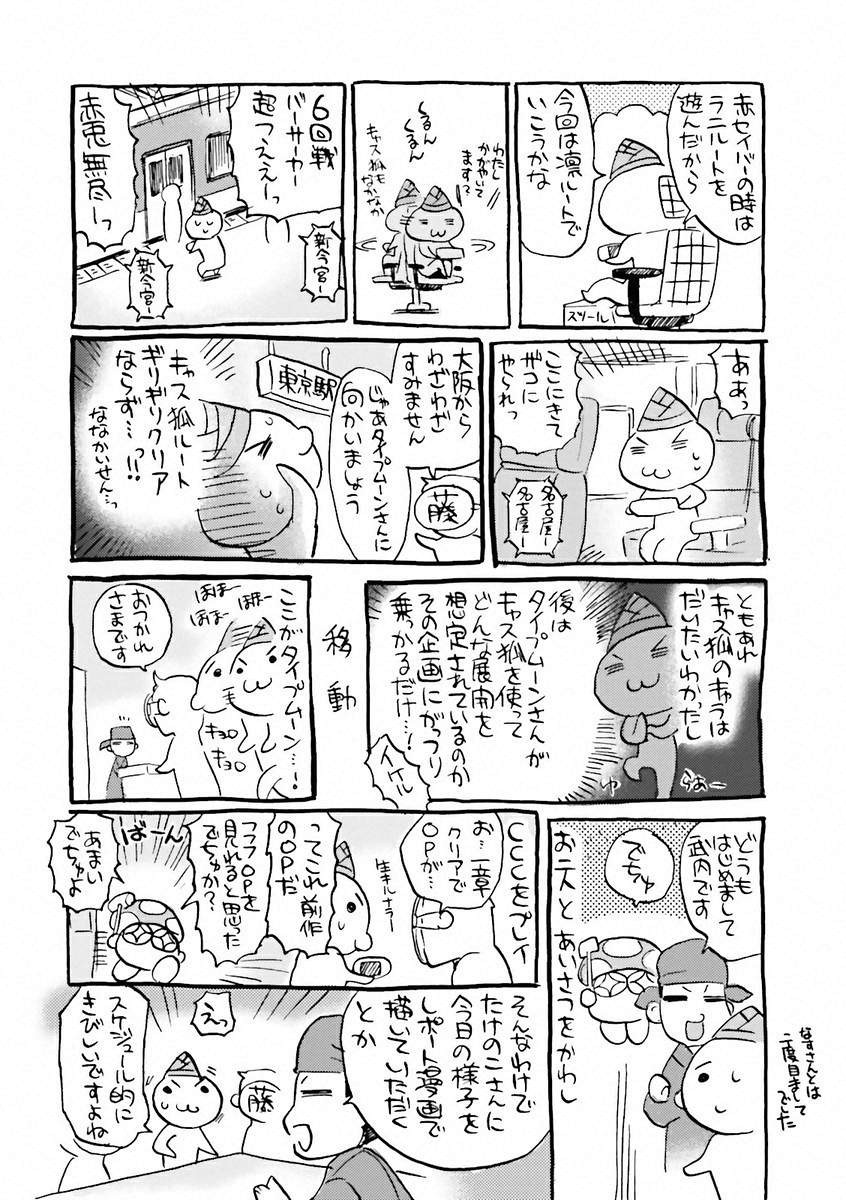 赤セイバーの時は
ラニルートを
遊んだから
今回は凛ルートで
いこうかな
スツール
くるん
くるん
わたし
かがやいて
ます?
キャス狐も
なかなか
6回戦
バーサーカー
超つええーっ
赤兎無尽ーっ
新今宮ー
新今宮ー
ああっ
ここにきて
ザコに
やられっ
名古屋ー
名古屋ー
大阪から
わざわざ
すみません
じゃあタイプムーンさんに
向かいましょう
藤
東京駅
キャス狐ルート
ギリギリクリア
ならず…っ!!
ななかいせん…っ
ともあれ
キャス狐のキャラは
だいたいわかったし
後は
タイプムーンさんが
キャス狐を使って
どんな展開を
想定されているのか
その企画にがっつり
乗っかるだけ…!
イケル
移動
ここがタイプムーン…!
ほほー
ほほー
ほほー
キョロ
キョロ
おつかれ
さまです
どうも
はじめまして
武内です
でちゅ
お二人とあいさつをかわし
なすさんとは
二度目まして
でした
CCCをプレイ
お、一章
クリアで
OPが…
生キルナラー
ってこれ前作
のOPだ
フフOPを
見れると思った
でちゅか?
ばーん
あまい
でちゅよ
そんなわけで
たけのこさんに
今日の様子を
レポート漫画で
描いていただく
とか
えっ
藤
スケジュール的に
きびしいですよね